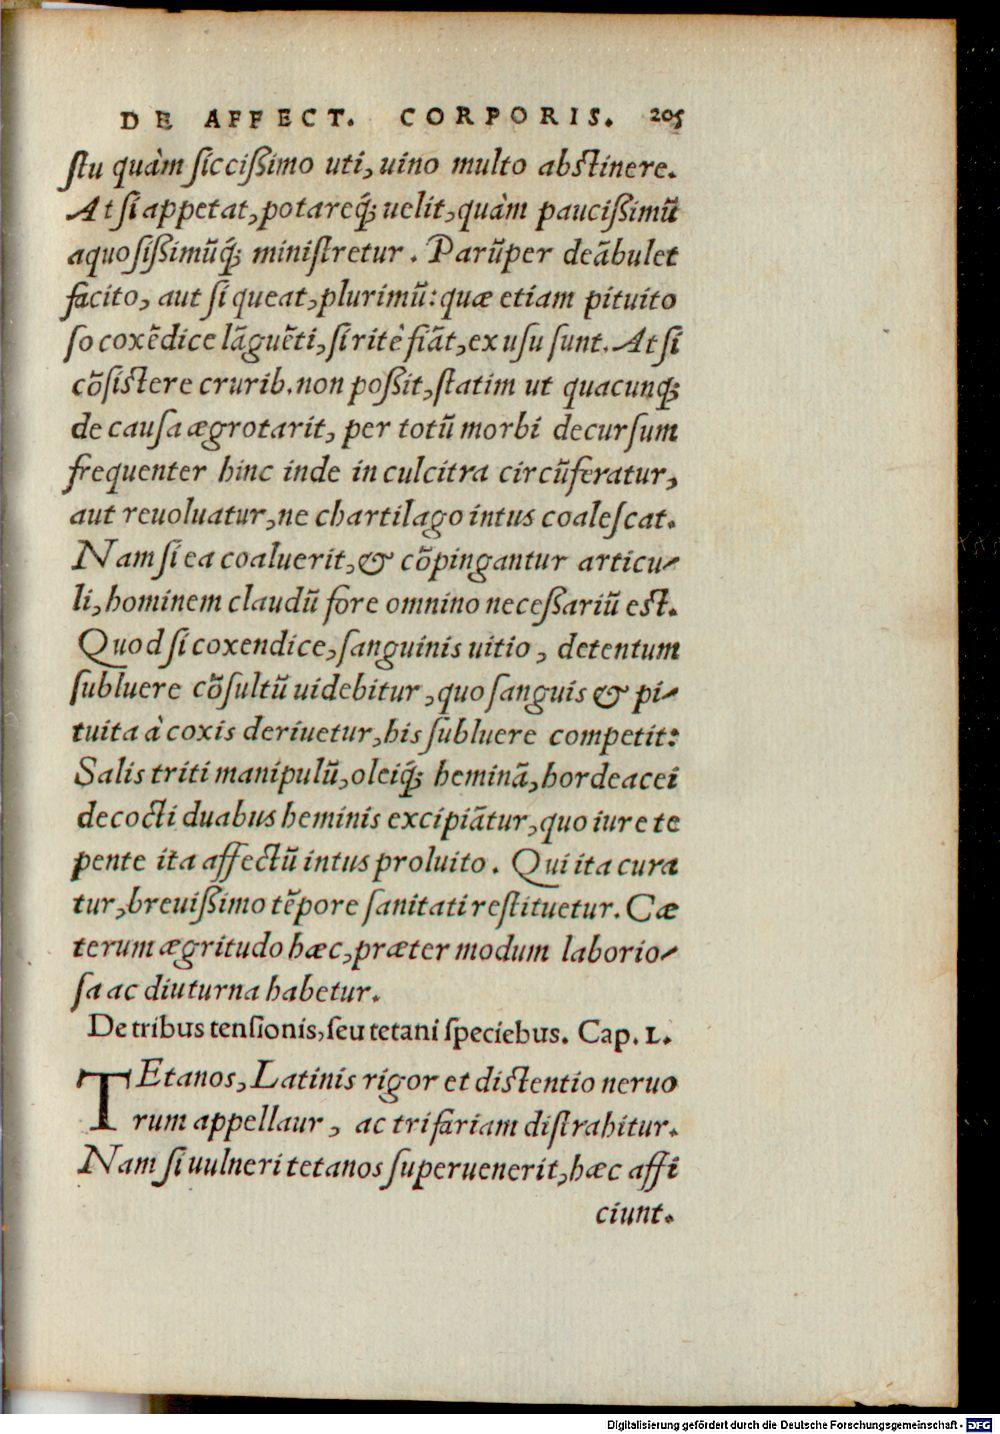 DE AFFECT. CORPORIS. 205
stu quàm siccißimo uti, uino multo abstinere.
At si appetat, potareq́; uelit, quàm paucißimũ
aquosißimũq́; ministretur. Parũper deãbulet
facito, aut si queat, plurimũ: quæ etiam pituito
so coxẽdice lãguẽti, si ritè fiãt, ex usu sunt. At si
cõsistere crurib. non poßit, statim ut quacunq;
de causa ægrotarit, per totũ morbi decursum
frequenter hinc inde in culcitra circũferatur,
aut reuoluatur, ne chartilago intus coalescat.
Nam si ea coaluerit, & cõpingantur articu-
li, hominem claudũ fore omnino necessariũ est.
Quod si coxendice, sanguinis uitio, detentum
subluere cõsultũ uidebitur, quo sanguis & pi-
tuita à coxis deriuetur, his subluere competit:
Salis triti manipulũ, oleiq́; heminã, hordeacei
decocti duabus heminis excipiãtur, quo iure te
pente ita affectũ intus proluito. Qui ita cura
tur, breuißimo tẽpore sanitati restituetur. Cæ
terum ægritudo hæc, præter modum laborio-
sa ac diuturna habetur.
De tribus tensionis, seu tetani speciebus. Cap. L.
TEtanos, Latinis rigor et distentio neruo
rum appellaur, ac trifariam distrahitur.
Nam si uulneri tetanos superuenerit, hæc affi
ciunt.
Digitalisierung gefördert durch die Deutsche Forschungsgemeinschaft - DFG